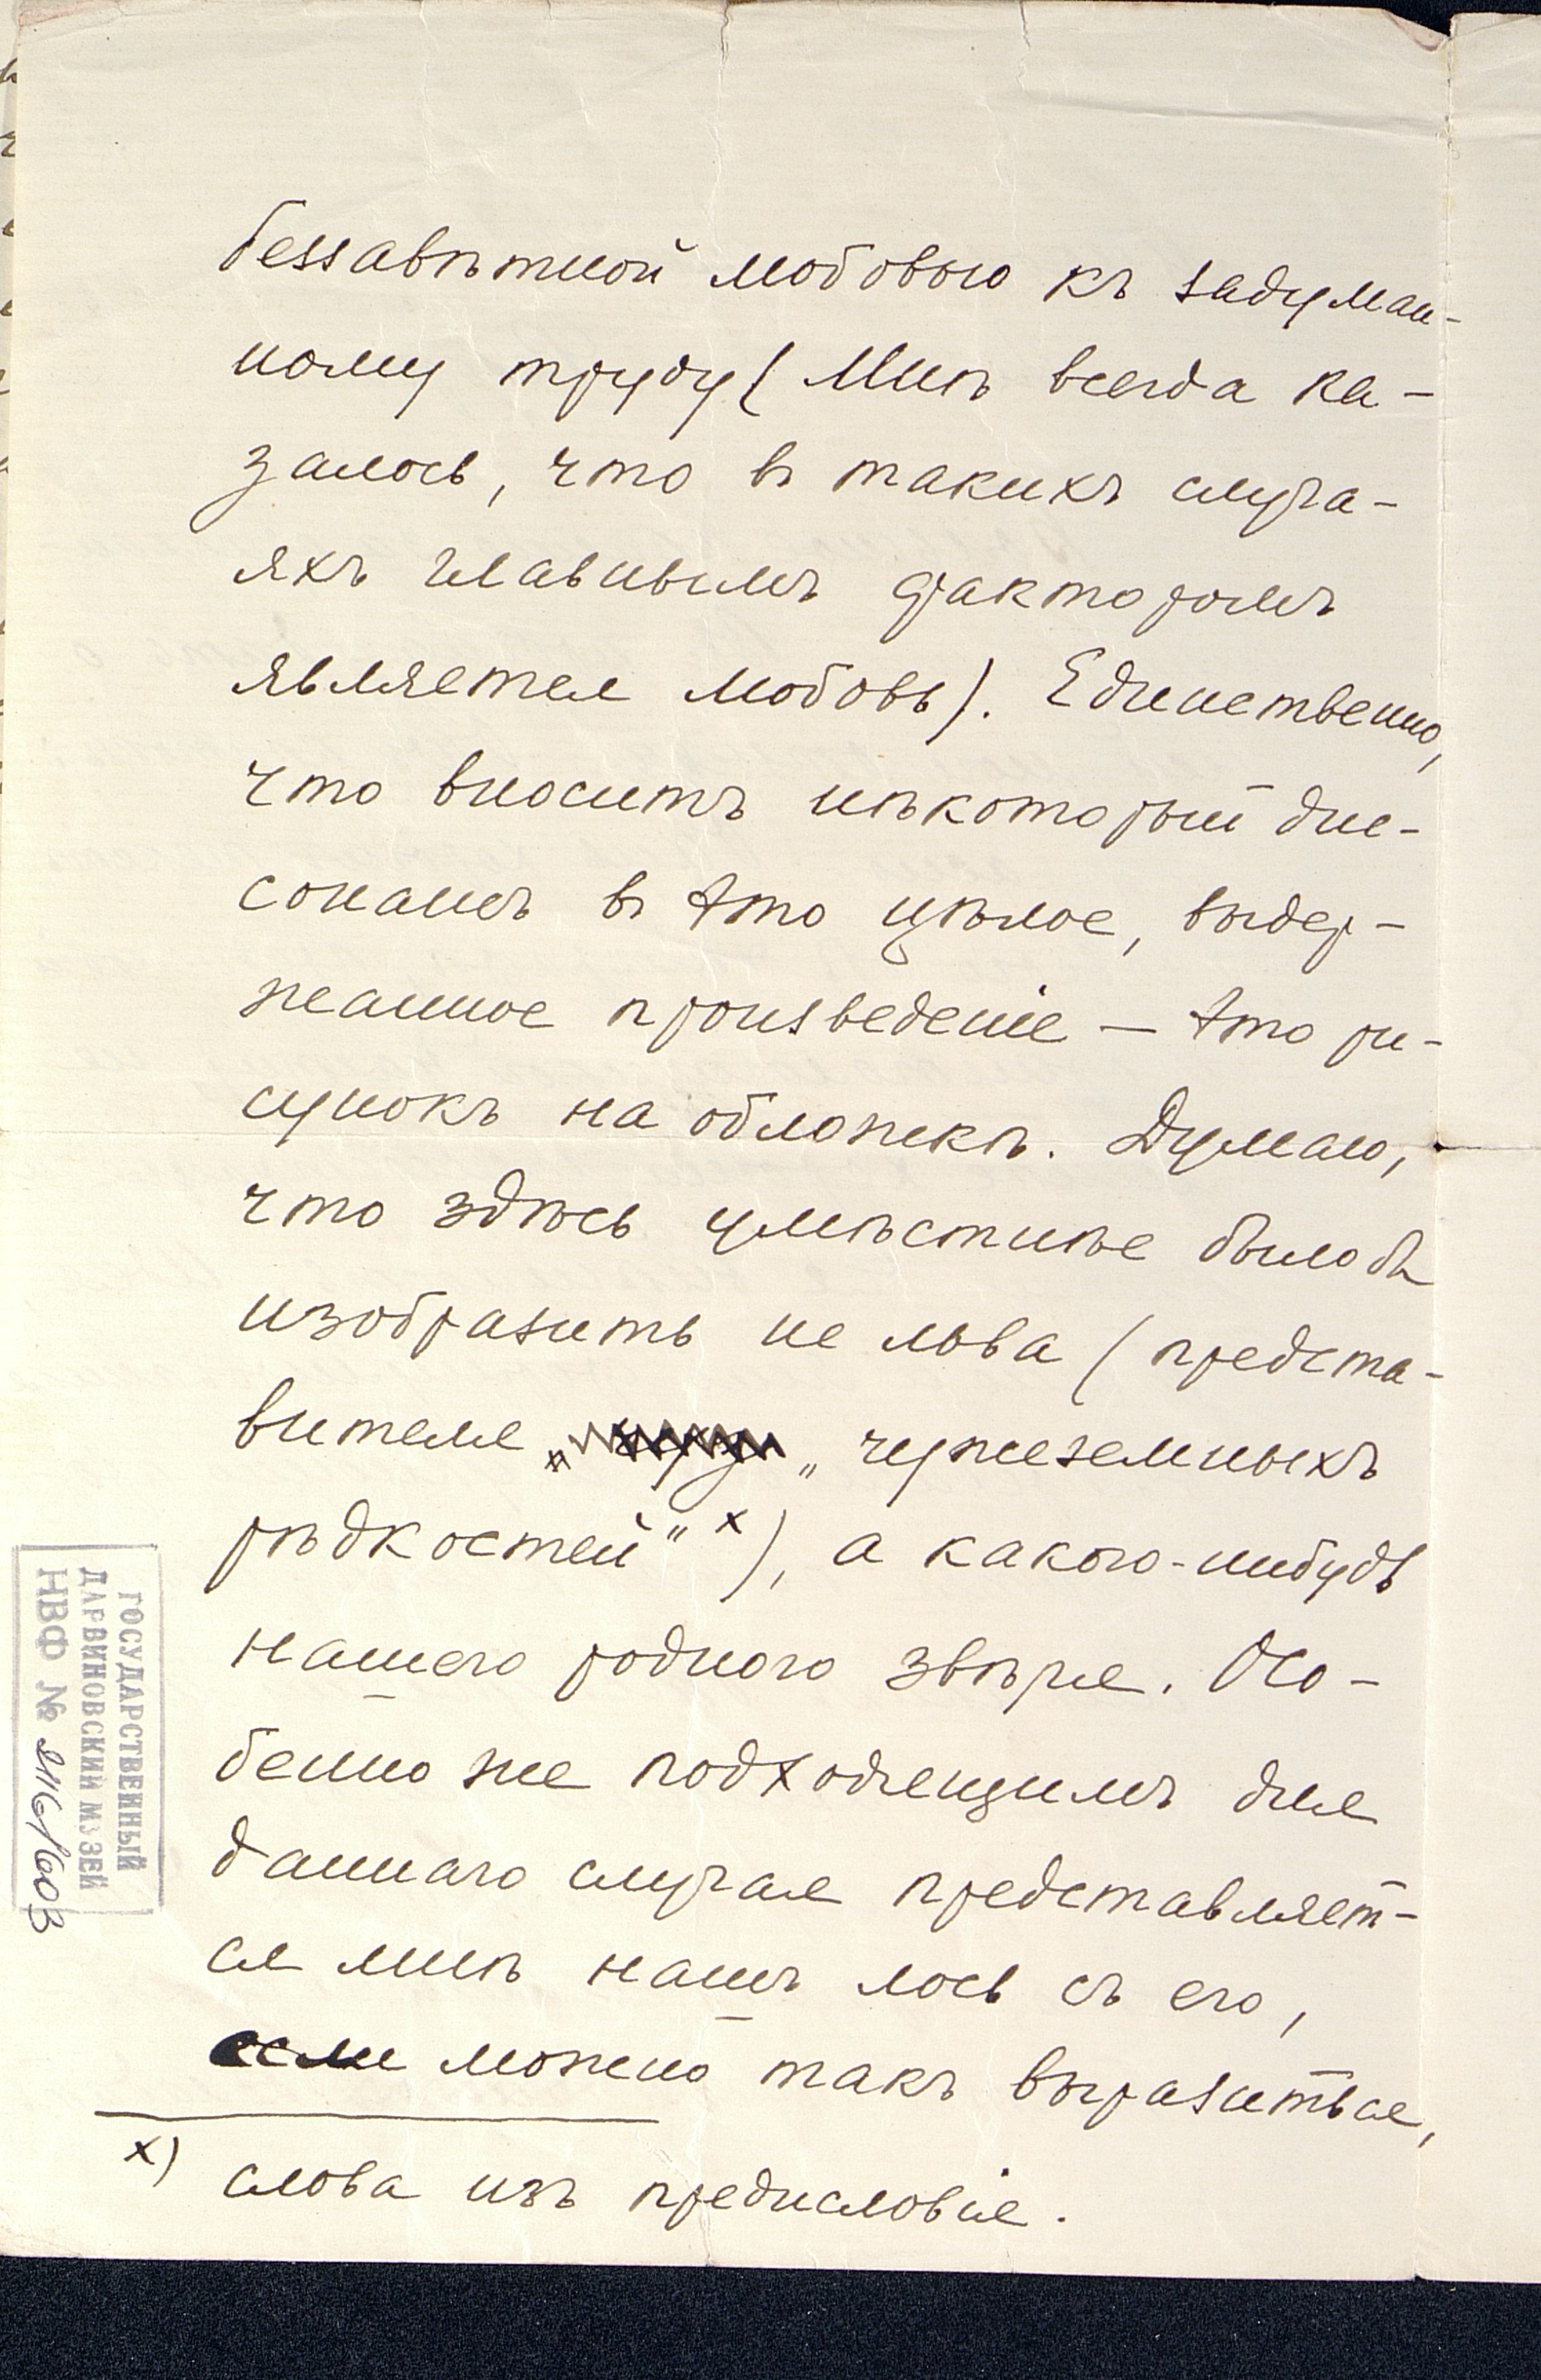 беззавѣтной любовью къ задуман-
ному труду (Мнѣ всегда ка-
залось, что въ такихъ случа-
яхъ главнымъ факторомъ
является любовь). Единственно,
что вноситъ нѣкоторый дис-
сонансъ въ это цѣлое, выдер-
жанное произведеніе — это ри-
сунокъ на обложкѣ. Думаю,
что здѣсь умѣстнѣе было бы
изобразить не льва (предста-
вителя „чужеземныхъ
рѣдкостей" x), а какого-нибудь
нашего родного звѣря. Осо-
бенно же подходящимъ для
даннаго случая представляет-
ся мнѣ нашъ лось съ его,
если можно такъ выразиться,
x) слова изъ предисловія.
ГОСУДАРСТВЕННЫЙ
ДАРВИНОВСКИЙ МУЗЕЙ
НВФ №